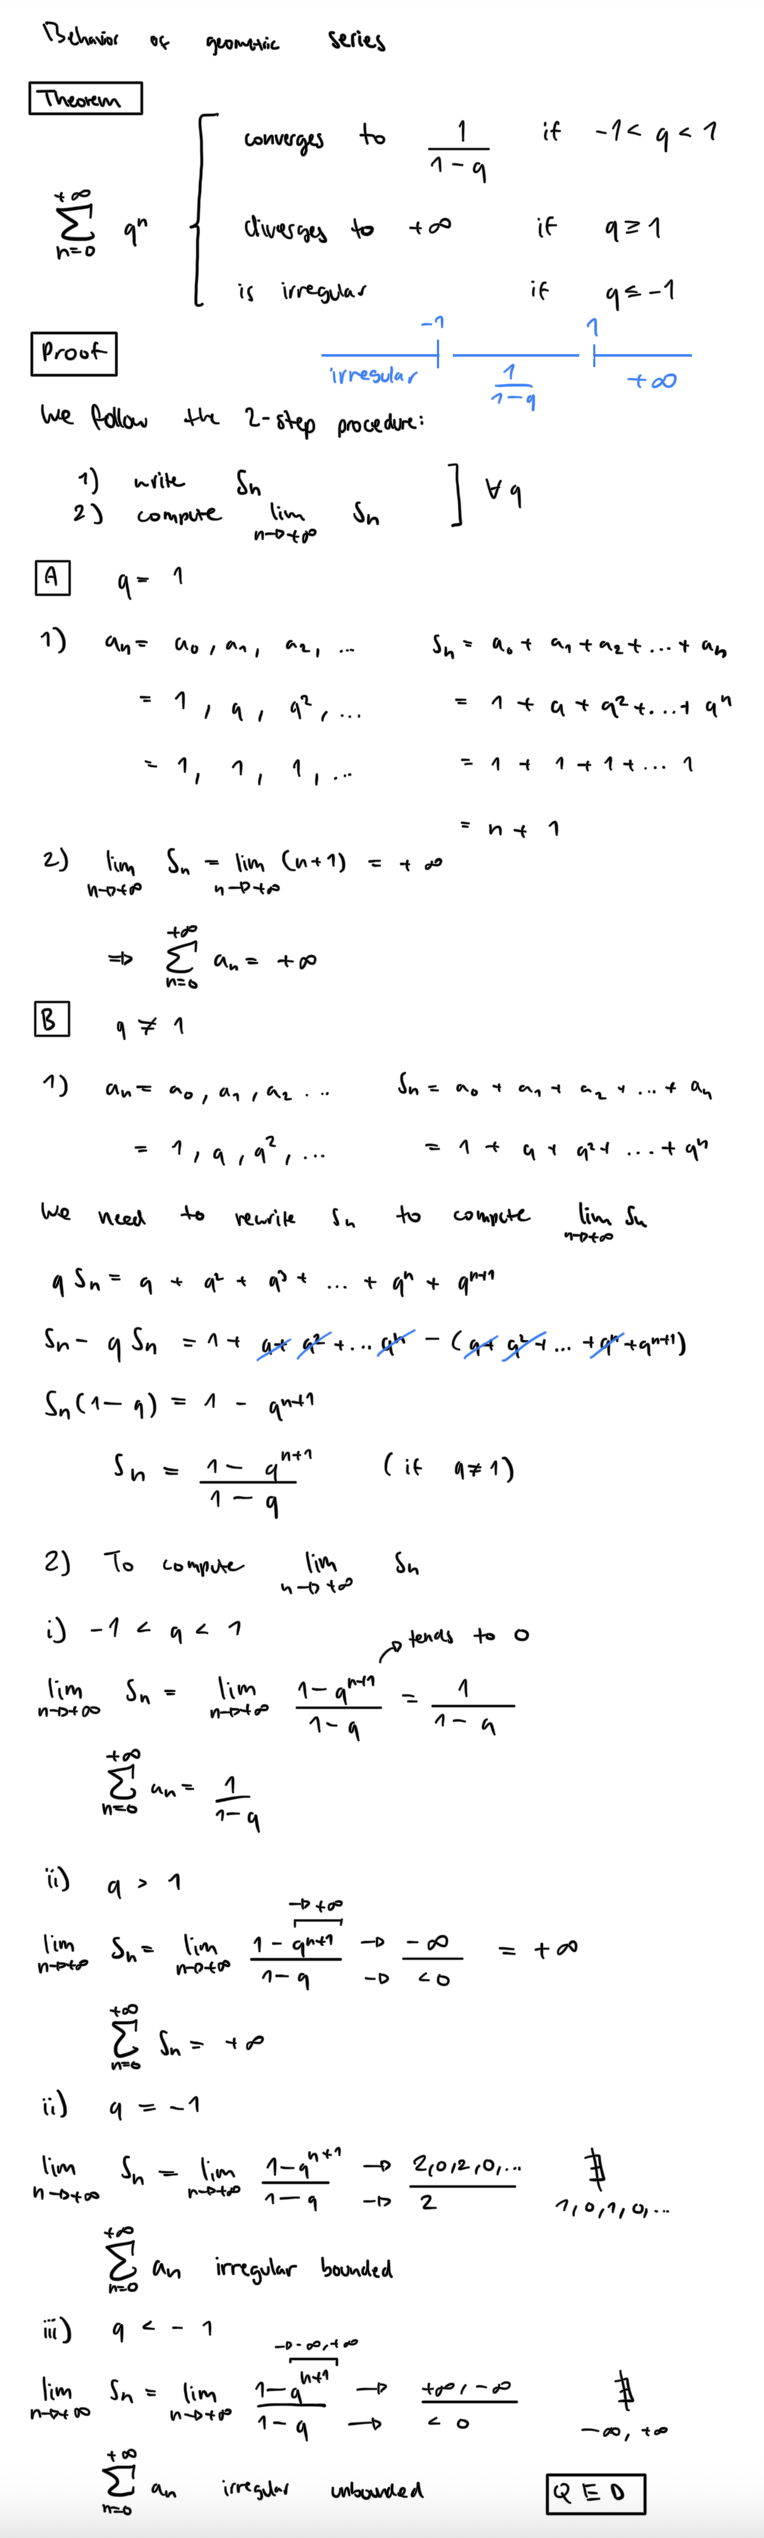 Behavior of geometric series
Theorem
+∞
∑ qⁿ
n=0
converges to 1/(1-q) if -1 < q < 1
diverges to +∞ if q ≥ 1
is irregular if q ≤ -1
Proof
-1 1
irregular 1/(1-q) +∞
We follow the 2-step procedure:
1) write Sn
2) compute lim n→+∞ Sn ] ∀ q
A q = 1
1) an = a0, a1, a2, ... Sn = a0 + a1 + a2 + ... + an
= 1, q, q², ... = 1 + q + q² + ... + qⁿ
= 1, 1, 1, ... = 1 + 1 + 1 + ... 1
= n + 1
2) lim n→+∞ Sn = lim n→+∞ (n+1) = +∞
⇒ ∑ n=0 +∞ an = +∞
B q ≠ 1
1) an = a0, a1, a2 ... Sn = a0 + a1 + a2 + ... + an
= 1, q, q², ... = 1 + q + q² + ... + qⁿ
We need to rewrite Sn to compute lim n→+∞ Sn
q Sn = q + q² + q³ + ... + qⁿ + qⁿ⁺¹
Sn - q Sn = 1 + q + q² + ... qⁿ - (q + q² + ... + qⁿ + qⁿ⁺¹)
Sn (1 - q) = 1 - qⁿ⁺¹
Sn = (1 - qⁿ⁺¹)/(1 - q) (if q ≠ 1)
2) To compute lim n→+∞ Sn
i) -1 < q < 1
→ tends to 0
lim n→+∞ Sn = lim n→+∞ (1 - qⁿ⁺¹)/(1 - q) = 1/(1 - q)
∑ n=0 +∞ an = 1/(1-q)
ii) q > 1
→ +∞
lim n→+∞ Sn = lim n→+∞ (1 - qⁿ⁺¹)/(1 - q) → → -∞/<0 = +∞
∑ n=0 +∞ Sn = +∞
ii) q = -1
lim n→+∞ Sn = lim n→+∞ (1-qⁿ⁺¹)/(1 - q) → → 2,0,2,0,.../2 ∄
1,0,1,0,...
∑ n=0 +∞ an irregular bounded
iii) q < -1
→ -∞, +∞
lim n→+∞ Sn = lim n→+∞ (1-qⁿ⁺¹)/(1 - q) → → +∞, -∞/<0 ∄
-∞, +∞
∑ n=0 +∞ an irregular unbounded QED